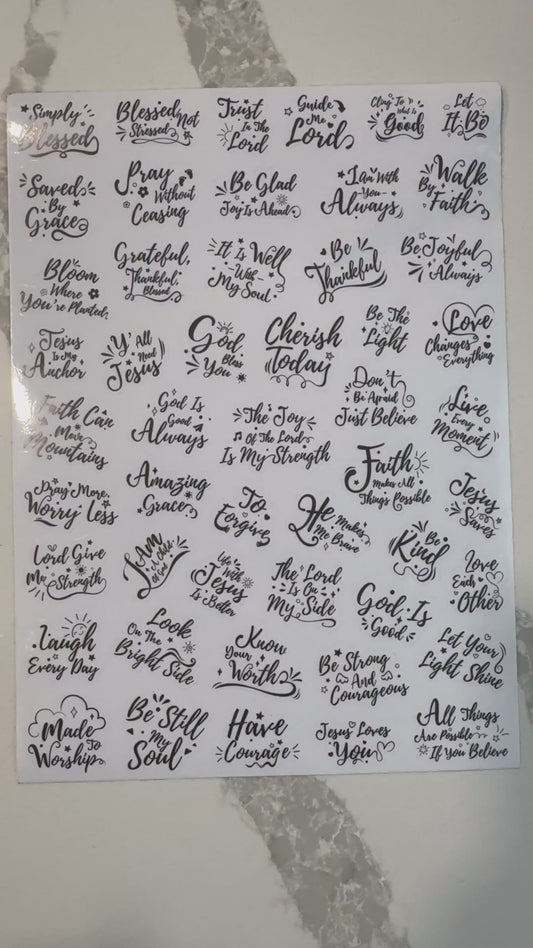 Simply
Blessed
Blessed Not
Stressed
Trust
In The
Lord
Guide
Me
Lord
Cling To
What Is
Good
Let
It Be
Saved
By
Grace
Pray
Without
Ceasing
Be Glad
Joy Is Ahead
I am With
You
Always
Walk
By
Faith
Bloom
Where
You're Planted
Grateful,
Thankful,
Blessed
It Is Well
With
My Soul
Be
Thankful
Be Joyful
Always
Jesus
Is My
Anchor
Y'All
Need
Jesus
God
Bless
You
Cherish
Today
Be The
Light
Love
Changes
Everything
Faith Can
Move
Mountains
God Is
Good
Always
The Joy
Of The Lord
Is My Strength
Don't
Be Afraid
Just Believe
Live
Every
Moment
Pray More,
Worry Less
Amazing
Grace
To
Forgive
He Makes
Me Brave
Faith
Makes All
Things Possible
Jesus
Saves
Lord Give
Me Strength
I Am
A Child
Of God
Life
With
Jesus
Is Better
The Lord
Is On
My Side
Be
Kind
Love
Each
Other
Laugh
Every Day
Look
On The
Bright Side
Know
Your
Worth
Be Strong
And
Courageous
God Is
Good
Let Your
Light Shine
Made
To
Worship
Be Still
My
Soul
Have
Courage
Jesus Loves
You
All Things
Are Possible
If You Believe